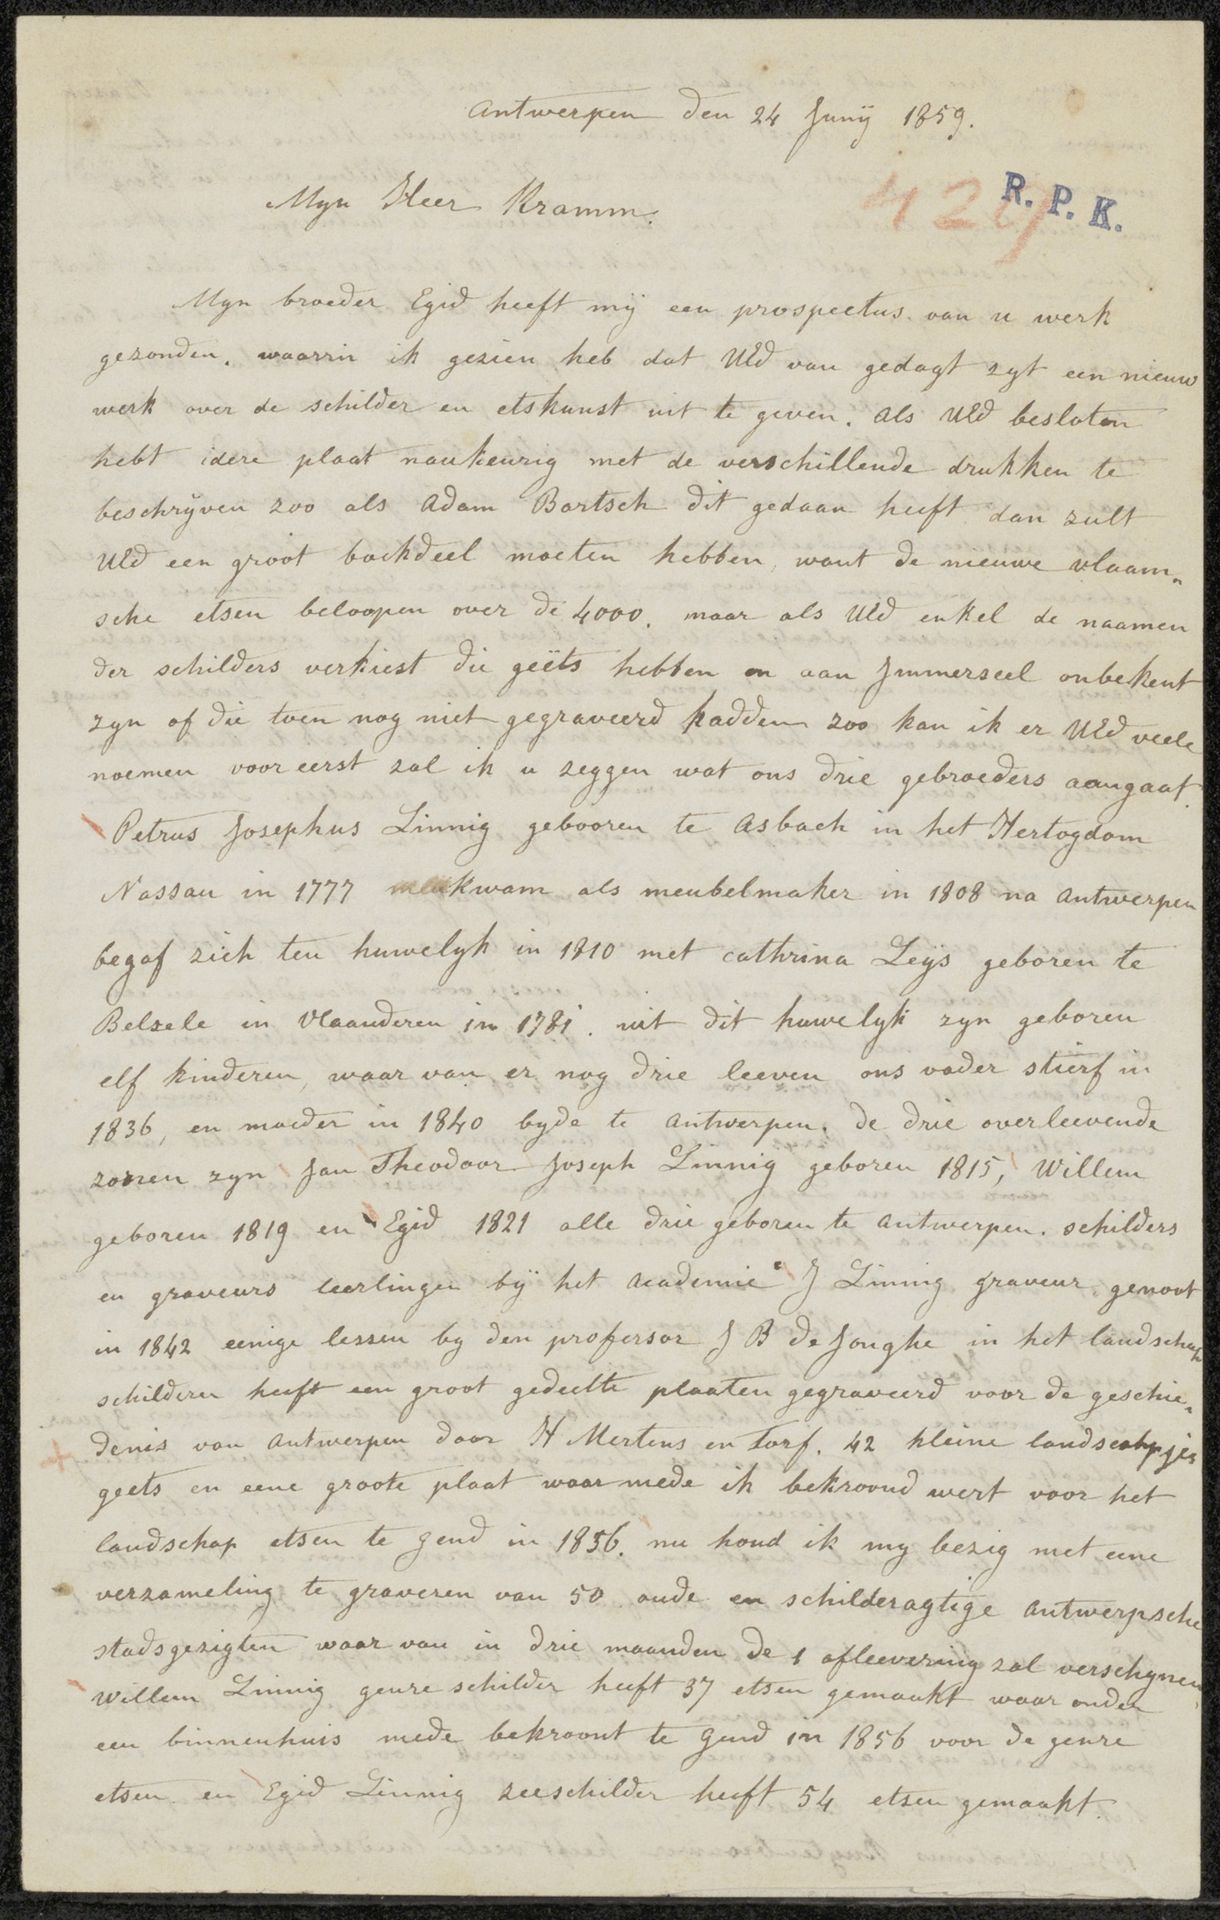 Antwerpen den 24 Junij 1859.
Myn Heer Kramm.
R. P. K.
Myn broeder Egid heeft mij een prospectus van u werk
gezonden. waarin ik gezien heb dat UEd van gedagt zyt een nieuw
werk over de schilder en etskunst uit te geven. als UEd besloten
hebt idere plaat naukeurig met de verschillende drukken te
beschryven zoo als Adam Bartsch dit gedaan heeft dan zult
UEd een groot boekdeel moeten hebben, want de nieuwe vlaam„
sche etsen beloopen over de 4000. maar als UEd enkel de naamen
der schilders verkiest die geëts hebben en aan Immerseel onbekent
zyn of die toen nog niet gegraveerd hadden zoo kan ik er UEd veele
noemen voor eerst zal ik u zeggen wat ons drie gebroeders aangaat.
Petrus Josephus Linnig gebooren te Asbach in het Hertogdom
Nassau in 1777 kwam als meubelmaker in 1808 na Antwerpen
begaf zich ten huwelyk in 1810 met Cathrina Leÿs geboren te
Belsele in Vlaanderen in 1781. uit dit huwelyk zyn geboren
elf kinderen, waar van er nog drie leeven ons vader stierf in
1836, en moeder in 1840 byde te Antwerpen. de drie overleevende
zoonen zyn Jan Theodoor Joseph Linnig geboren 1815, Willem
geboren 1819 en Egid 1821 alle drie geboren te Antwerpen. schilders
en graveurs leerlingen bÿ het Academie J Linnig graveur genoot
in 1842 eenige lessen by den professor J B de Jonghe in het landschap
schilderen heeft een groot gedeelte plaaten gegraveerd voor de geschie„
denis van Antwerpen door H Mertens en Torf. 42 kleine landschapjes
geets en eene groote plaat waar mede ik bekroond wert voor het
landschap etsen te Gend in 1856. nu houd ik my bezig met eene
verzameling te graveren van 50 oude en schilderagtige Antwerpsche
stadsgezigten waar van in drie maanden de 1 afleevering zal verschynen
Willem Linnig genre schilder heeft 37 etsen gemaakt waar onder
een binnenhuis mede bekroont te Gend in 1856 voor de genre
etsen en Egid Linnig zeeschilder heeft 54 etsen gemaakt.